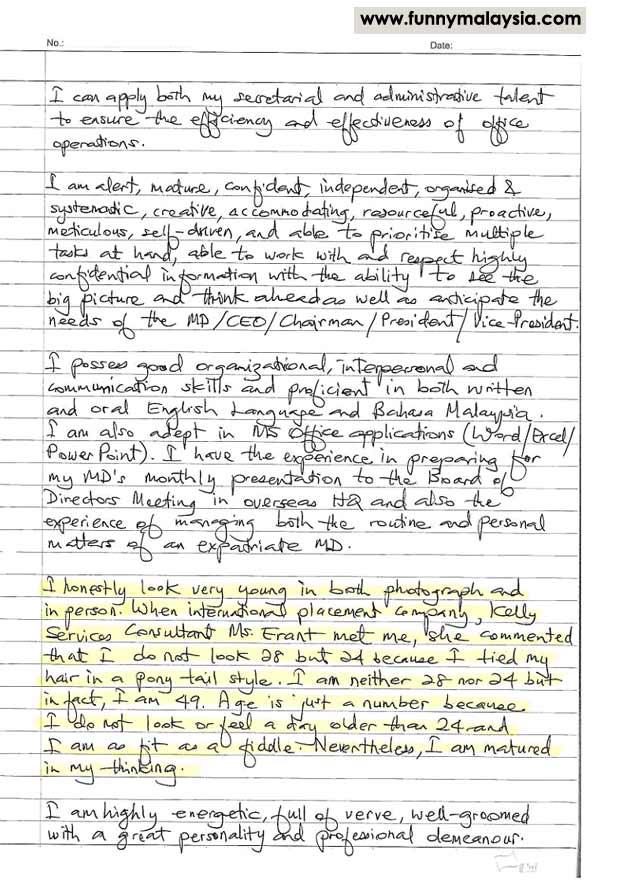 www.funnymalaysia.com
No.: Date:
I can apply both my secretarial and administrative talent
to ensure the efficiency and effectiveness of office
operations.
I am alert, mature, confident, independent, organised &
systematic, creative, accommodating, resourceful, proactive,
meticulous, self-driven, and able to prioritise multiple
tasks at hand, able to work with and respect highly
confidential information with the ability to see the
big picture and think ahead as well as anticipate the
needs of the MD/CEO/Chairman/President/Vice-President.
I possess good organizational, interpersonal and
communication skills and proficient in both written
and oral English Language and Bahasa Malaysia.
I am also adept in MS Office applications (Word/Excel/
PowerPoint). I have the experience in preparing for
my MD's monthly presentation to the Board of
Directors Meeting in overseas HQ and also the
experience of managing both the routine and personal
matters of an expatriate MD.
I honestly look very young in both photograph and
in person. When international placement company, Kelly
Services Consultant Ms. Erant met me, she commented
that I do not look 28 but 24 because I tied my
hair in a pony tail style. I am neither 28 nor 24 but
in fact, I am 49. Age is just a number because
I do not look or feel a day older than 24 and
I am as fit as a fiddle. Nevertheless, I am matured
in my thinking.
I am highly energetic, full of verve, well-groomed
with a great personality and professional demeanour.